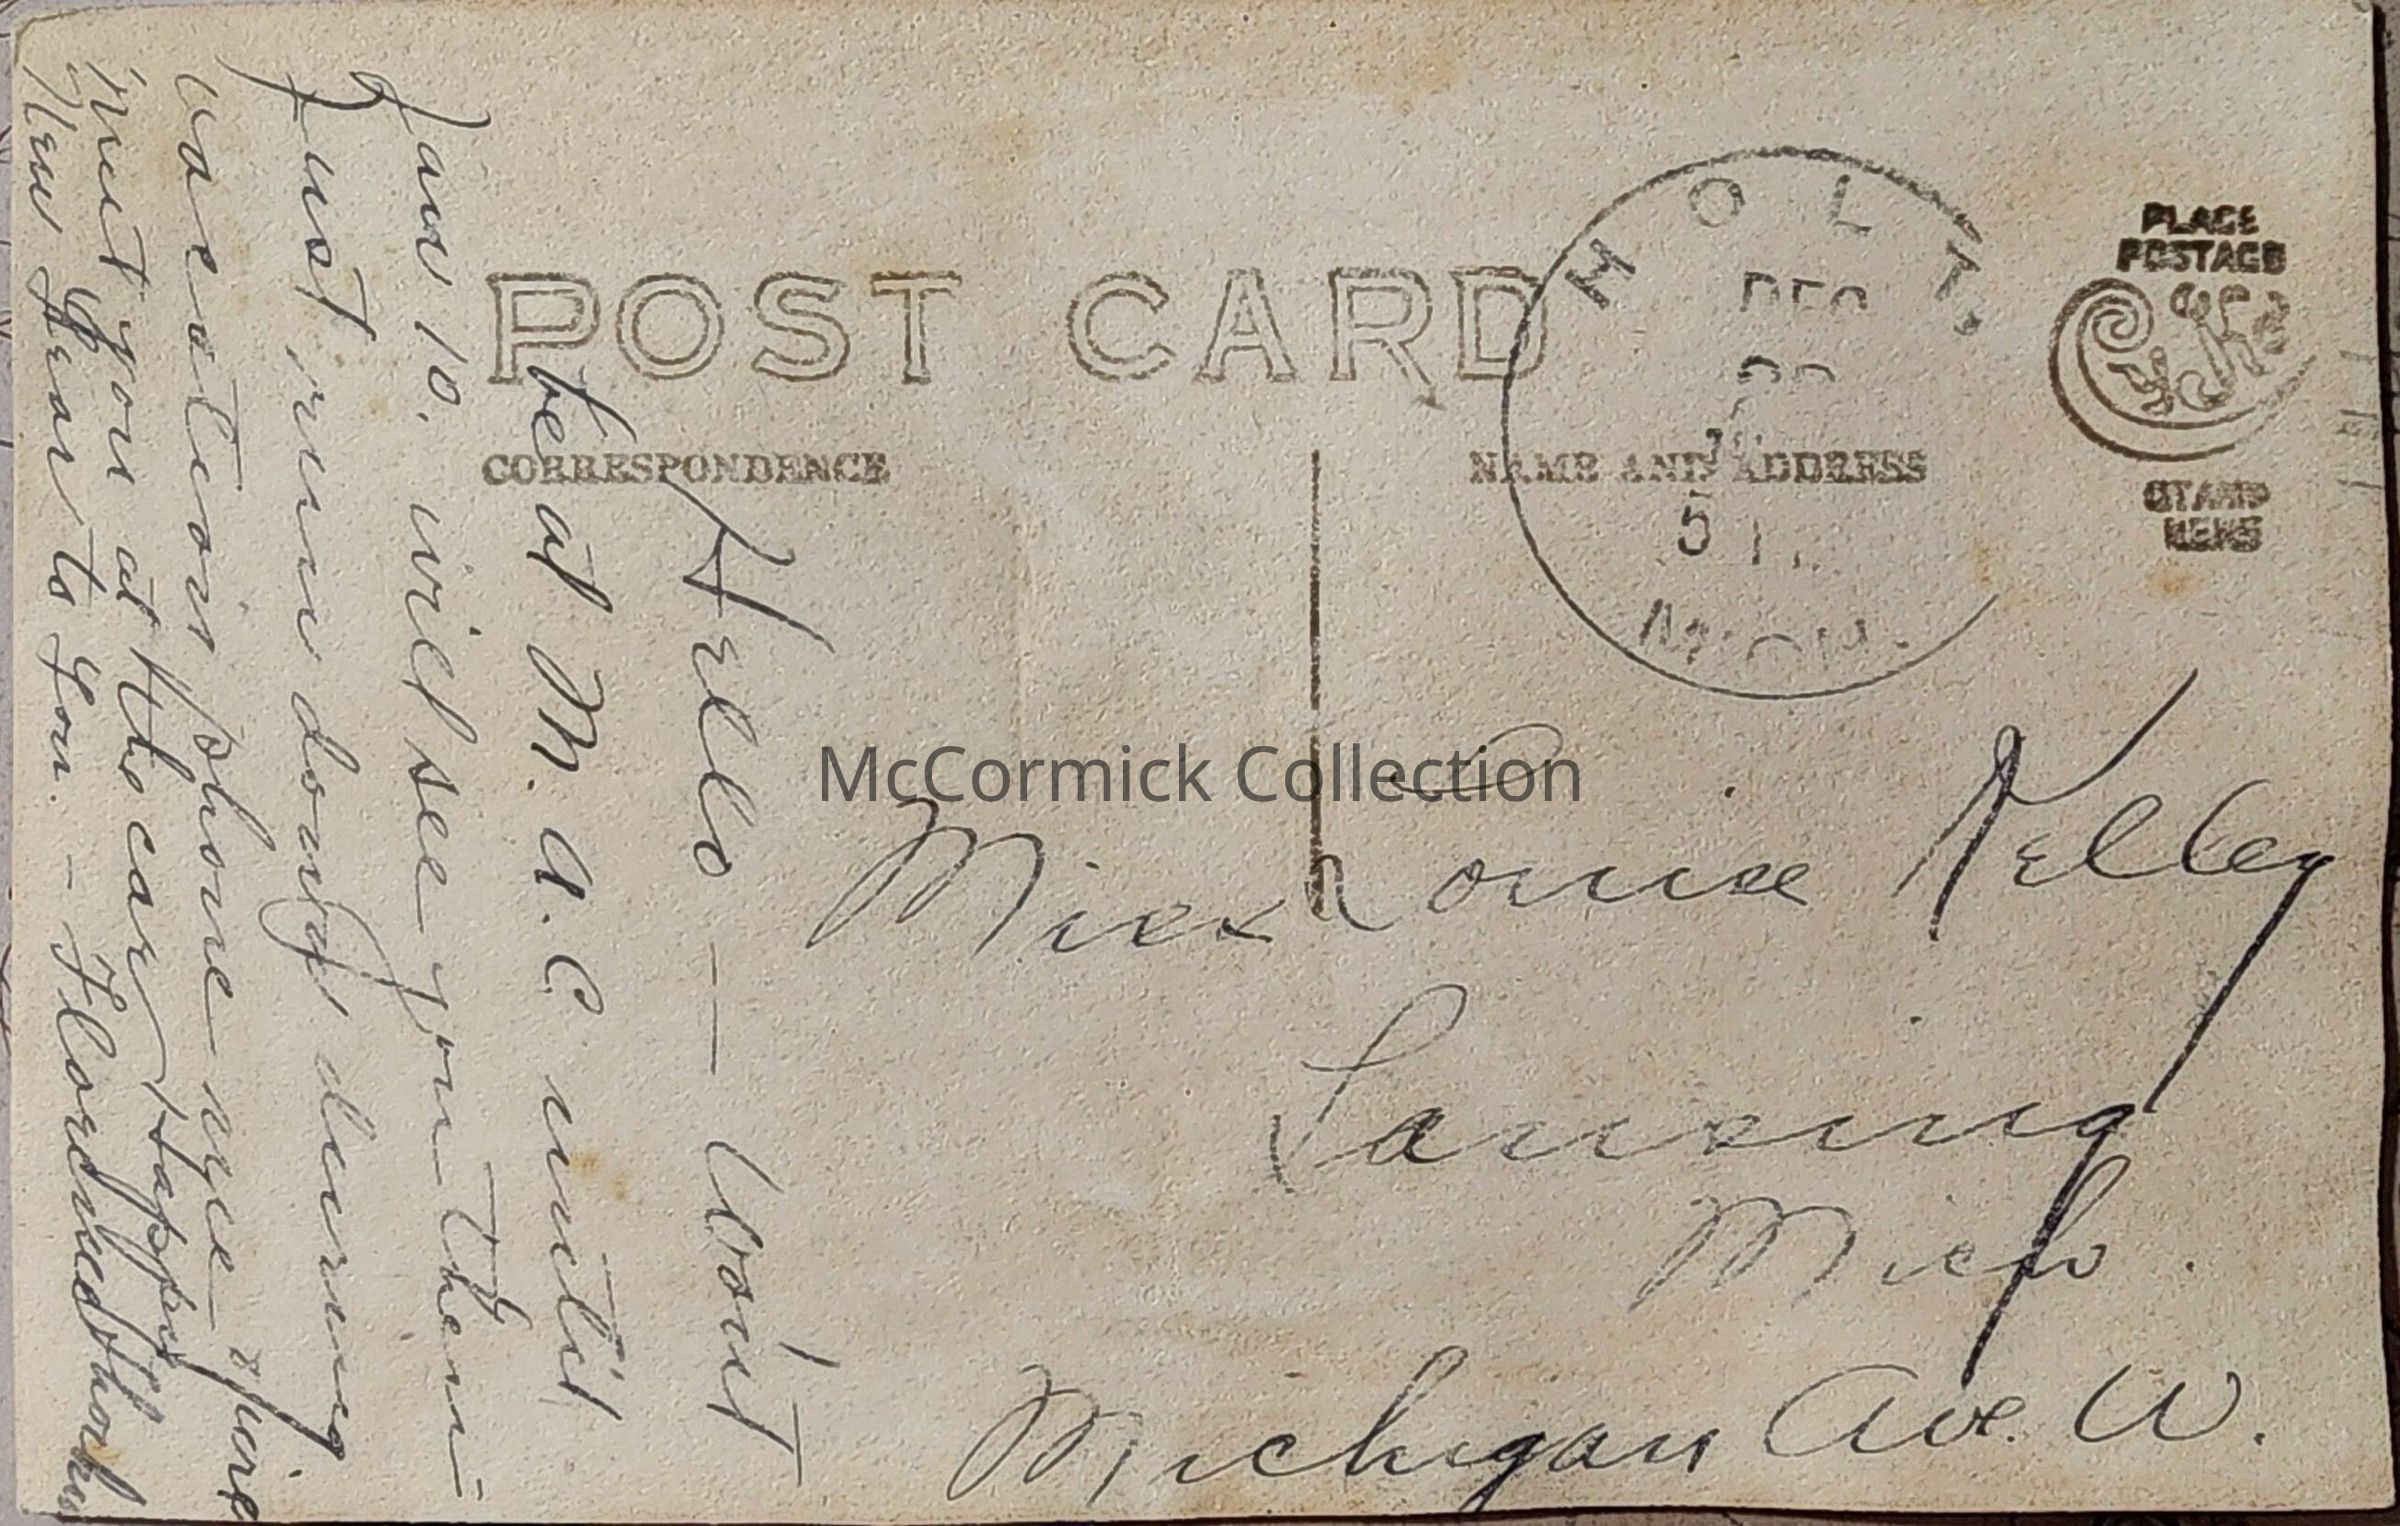 POST CARD
CORRESPONDENCE
NAME AND ADDRESS
PLACE
POSTAGE
STAMP
HERE
HOLT.
DEC
5
MICH.
Hello – Won't
be at M.A.C. until
Jan 10. will see you then –
Just run down during
vacation phone me
meet you at the car Happy
New Year to You. – Florence
Miss Louise Kelley
Lansing
Mich.
Michigan Ave. W.
McCormick Collection